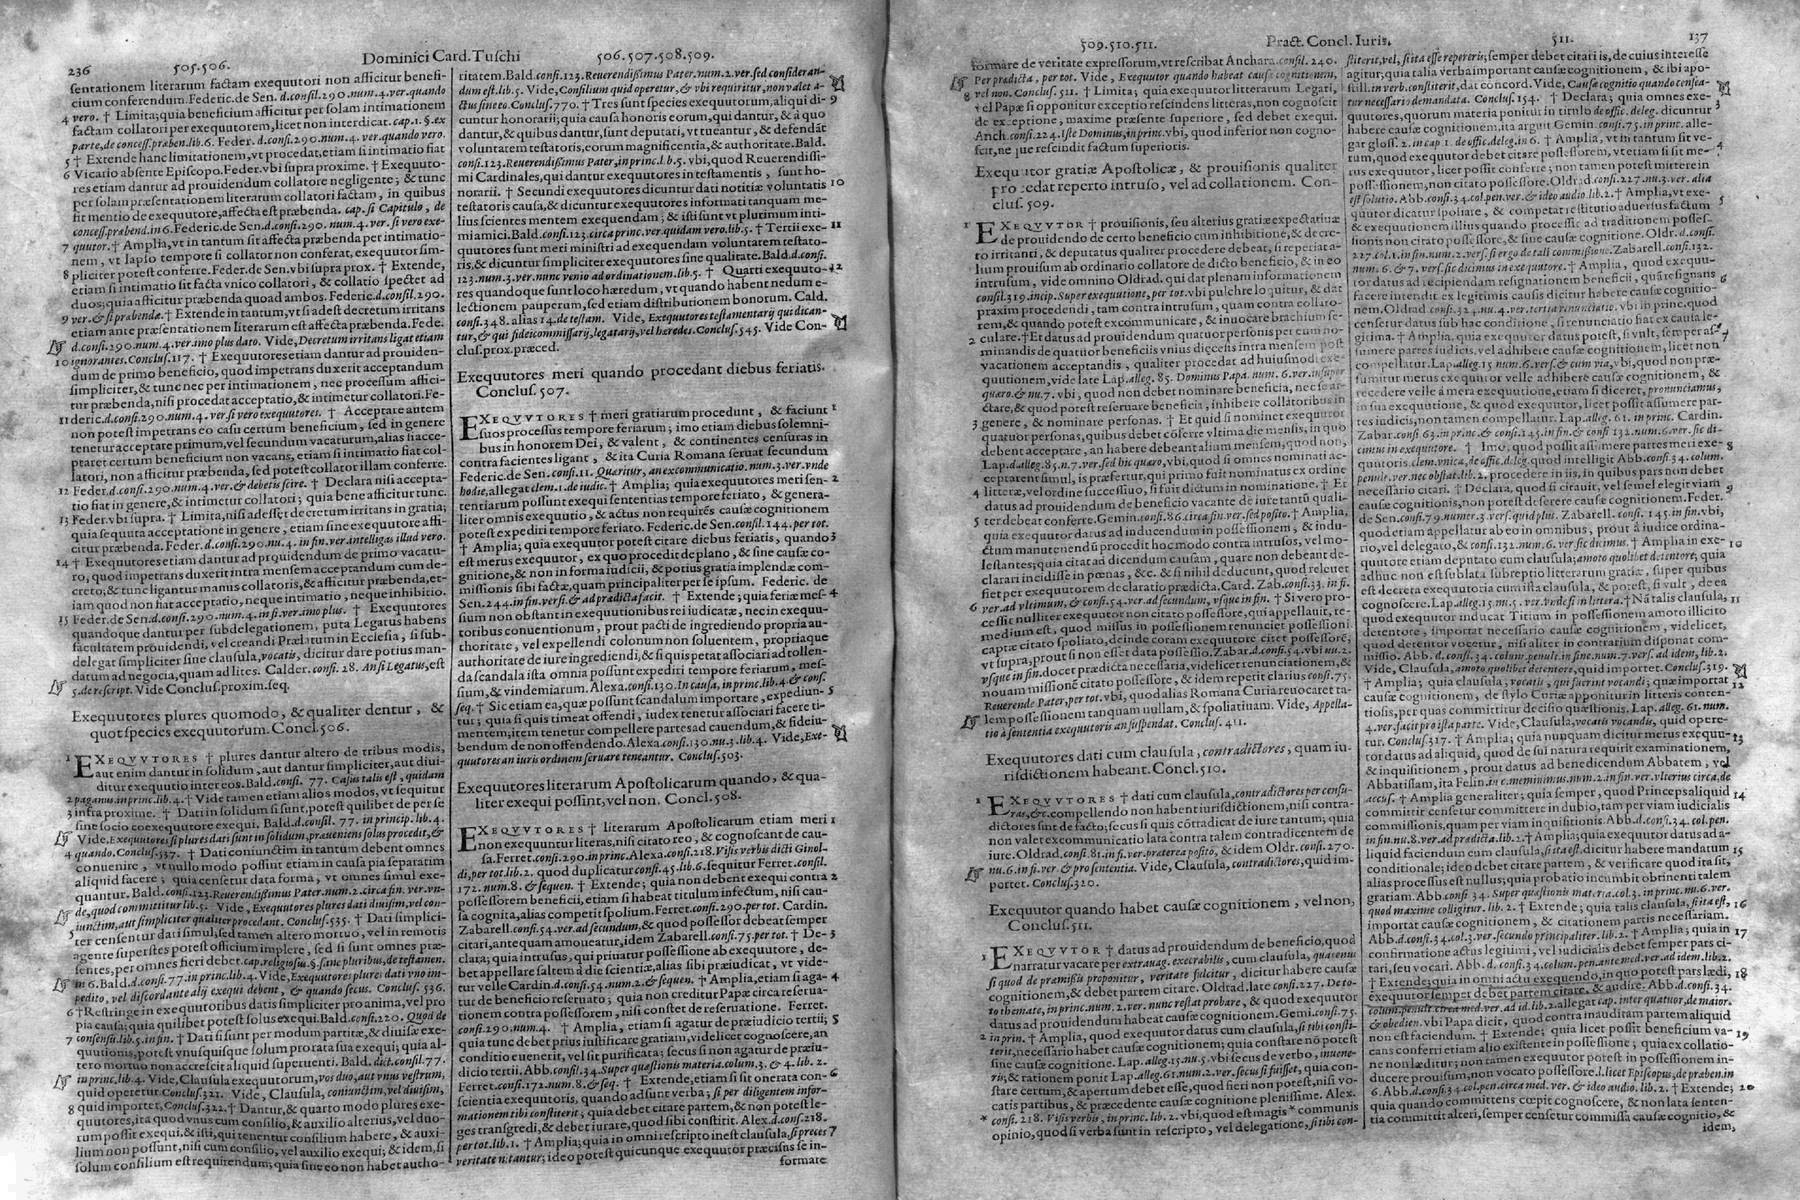 236 505.506. Dominici Card. Tuschi 506.507.508.509.
sentationem literarum factam exequutori non afficitur benefi-
cium conferendum. Federic. de Sen. d. consil. 290. num. 4. ver. quando
4 vero. † Limita; quia beneficium afficitur per solam intimationem
factam collatori per exequutorem, licet non interdicat. cap. 1. §. ex
parte, de concess. præben. lib. 6. Feder. d. consi. 290. num. 4. ver. quando vero.
5 † Extende hanc limitationem, vt procedat, etiam si intimatio fiat
6 Vicario absente Episcopo. Feder. vbi supra proxime. † Exequuto-
res etiam dantur ad prouidendum collatore negligente; & tunc
per solam præsentationem literarum collatori factam, in quibus
fit mentio de exequutore, affecta est præbenda. cap. si Capitulo, de
concess. præbend. in 6. Feder. de Sen. d. consi. 290. num. 4. ver. si vero exe-
7 quutor. † Amplia, vt in tantum sit affecta præbenda per intimatio-
nem, vt lapso tempore si collator non conferat, exequutor sim-
8 pliciter potest conferre. Feder. de Sen. vbi supra prox. † Extende,
etiam si intimatio sit facta vnico collatori, & collatio spectet ad
duos; quia afficitur præbenda quoad ambos. Federic. d. consil. 290.
9 ver. & si præbenda. † Extende in tantum, vt si adest decretum irritans
etiam ante præsentationem literarum est affecta præbenda. Fede.
d. consi. 290. num. 4. ver. imo plus dato. Vide, Decretum irritans ligat etiam
10 ignorantes. Conclus. 117. † Exequutores etiam dantur ad prouiden-
dum de primo beneficio, quod impetrans duxerit acceptandum
simpliciter, & tunc nec per intimationem, nec processum affici-
tur præbenda, nisi procedat acceptatio, & intimetur collatori. Fe-
11 deric. d. consi. 290. num. 4. ver. si vero exequutores. † Acceptare autem
non potest impetrans eo casu certum beneficium, sed in genere
tenetur acceptare primum, vel secundum vacaturum, alias si acce-
ptaret certum beneficium non vacans, etiam si intimatio fiat col-
latori, non afficitur præbenda, sed potest collator illam conferre.
12 Feder. d. consi. 290. num. 4. ver. & debetis scire. † Declara nisi accepta-
tio fiat in genere, & intimetur collatori; quia bene afficitur tunc.
13 Feder. vbi supra. † Limita, nisi adesset decretum irritans in gratia;
quia sequuta acceptatione in genere, etiam sine exequutore affi-
citur præbenda. Feder. d. consi. 290. nu. 4. in fin. ver. intelligas illud vero.
14 † Exequutores etiam dantur ad prouidendum de primo vacatu-
ro, quod impetrans duxerit intra mensem acceptandum cum de-
creto; & tunc ligantur manus collatoris, & afficitur præbenda, et-
iam quod non fiat acceptatio, neque intimatio, neque inhibitio.
Feder. de Sen. d. consi. 290. num. 4. in fi. ver. imo plus. † Exequutores
15 quandoque dantur per subdelegationem, puta Legatus habens
facultatem prouidendi, vel creandi Prælatum in Ecclesia, si sub-
delegat simpliciter sine clausula, vocatis, dicitur dare potius man-
datum ad negocia, quam ad lites. Calder. consi. 28. An si Legatus, est
3. de rescript. Vide Conclus. proxim. seq.
Exequutores plures quomodo, & qualiter dentur, &
quot species exequutorum. Concl. 506.
1 EXEQVVTORES † plures dantur altero de tribus modis,
aut enim dantur in solidum, aut dantur simpliciter, aut diui-
ditur exequutio inter eos. Bald. consi. 77. Casus talis est, quidam
2 paganus. in princ. lib. 4. † Vide tamen etiam alios modos, vt sequitur
3 infra proxime. † Dati in solidum si sunt, potest quilibet de per se
sine socio coexequutore exequi. Bald. d. consi. 77. in princip. lib. 4.
Vide, Exequutores si plures dati sunt in solidum, præueniens solus procedit, &
4 quando. Conclus. 537. † Dati coniunctim in tantum debent omnes
conuenire, vt nullo modo possint etiam in causa pia separatim
aliquid facere; quia censetur data forma, vt omnes simul exe-
quantur. Bald. consi. 123. Reuerendissimus Pater. num. 2. circa fin. ver. vn-
de, quod committitur lib. 5. Vide, Exequutores plures dati diuisim, vel con-
iunctim, aut simpliciter qualiter procedant. Conclus. 535. † Dati simplici-
5 ter censentur dati simul, sed tamen altero mortuo, vel in remotis
agente superstes potest officium implere, sed si sunt omnes præ-
sentes, per omnes fieri debet. cap. religiosus. §. sane pluribus, de testamen.
in 6. Bald. d. consi. 77. in princ. lib. 4. Vide, Exequutores plures dati vno im-
pedito, vel discordante alij exequi debent, & quando secus. Conclus. 536.
6 † Restringe in exequutoribus datis simpliciter pro anima, vel pro
pia causa; quia quilibet potest solus exequi. Bald. consi. 220. Quod de
7 consensi. lib. 5. in fin. † Dati si sunt per modum partitæ, & diuisæ exe-
quutionis, potest vnusquisque solum pro rata sua exequi; quia al-
tero mortuo non accrescit aliquid superuenti. Bald. dict. consil. 77.
in princ. lib. 4. Vide, Clausula exequutorum, vos duo, aut vnus vestrum,
quid operetur Conclus. 321. Vide, Clausula, coniunctim, vel diuisim,
8 quid importet, Conclus. 322. † Dantur, & quarto modo plures exe-
quutores, ita quod vnus cum consilio, & auxilio alterius, vel duo-
rum possit exequi. & isti, qui tenentur consilium habere, & auxi-
lium non possunt, nisi cum consilio, vel auxilio exequi; & idem, si
solum consilium est requirendum; quia sine eo non habet autho-
ritatem. Bald. consi. 123. Reuerendissimus Pater. num. 2. ver. sed consideran-
dum est. lib. 5. Vide, Consilium quid operetur, & vbi requiritur, non valet a-
ctus sine eo. Conclus. 770. † Tres sunt species exequutorum, aliqui di- 9
cuntur honorarii; quia causa honoris eorum, qui dantur, & a quo
dantur, & quibus dantur, sunt deputati, vt tueantur, & defendãt
voluntatem testatoris, eorum magnificentia, & authoritate. Bald.
consi. 123. Reuerendissimus Pater, in princ. l. b. 5. vbi, quod Reuerendissi-
mi Cardinales, qui dantur exequutores in testamentis, sunt ho-
norarii. † Secundi exequutores dicuntur dati notitiæ voluntatis 10
testatoris causa, & dicuntur exequutores informati tanquam me-
lius scientes mentem exequendam; & isti sunt vt plurimum inti-
mi amici. Bald. consi. 123. circa princ. ver. quidam vero. lib. 5. † Tertii exe- 11
quutores sunt meri ministri ad exequendam voluntatem testato-
ris, & dicuntur simpliciter exequutores sine qualitate. Bald. d. consi.
123. num. 3. ver. nunc venio ad ordinationem. lib. 5. † Quarti exequuto- 12
res quandoque sunt loco hæredum, vt quando habent nedum e-
lectionem pauperum, sed etiam distributionem bonorum. Cald.
consi. 348. alias 14. de testam. Vide, Exequutores testamentarij qui dican-
tur, & qui fideicommissarij, legatarij, vel heredes. Conclus. 545. Vide Con-
clus. prox. præced.
Exequutores meri quando procedant diebus feriatis.
Conclus. 507.
EXEQVVTORES † meri gratiarum procedunt, & faciunt 1
suos processus tempore feriarum; imo etiam diebus solemni-
bus in honorem Dei, & valent, & continentes censuras in
contra facientes ligant, & ita Curia Romana seruat secundum
Federic. de Sen. consi. 11. Quæritur, an excommunicatio. num. 3. ver. vnde
hodie, allegat clem. 1. de iudic. † Amplia; quia exequutores meri sen- 2
tentiarum possunt exequi sententias tempore feriato, & genera-
liter omnis exequutio, & actus non requirẽs causæ cognitionem
potest expediri tempore feriato. Federic. de Sen. consil. 144. per tot.
† Amplia; quia exequutor potest citare diebus feriatis, quando 3
est merus exequutor, ex quo procedit de plano, & sine causæ co-
gnitione, & non in forma iudicii, & potius gratia implendæ com-
missionis sibi factæ, quam principaliter per se ipsum. Federic. de
Sen. 244. in fin. versi. & ad prædicta facit. † Extende; quia feriæ mes- 4
sium non obstant in exequutionibus rei iudicatæ, nec in exequu-
toribus conuentionum, prout pacti de ingrediendo propria au-
thoritate, vel expellendi colonum non soluentem, propriaque
authoritate de iure ingrediendi, & si quis petat associari ad tollen-
da scandala ista omnia possunt expediri tempore feriarum, mes-
sium, & vindemiarum. Alexa. consi. 130. In causa, in princ. lib. 4. & cons.
seq. † Sic etiam ea, quæ possunt scandalum importare, expediun- 5
tur; quia si quis timeat offendi, iudex tenetur associari facere ti-
mentem; item tenetur compellere partes ad cauendum, & fideiu-
bendum de non offendendo. Alexa. consi. 130. nu. 3. lib. 4. Vide, Exe-
quutores an iuris ordinem seruare teneantur. Conclus. 503.
Exequutores literarum Apostolicarum quando, & qua-
liter exequi possint, vel non. Concl. 508.
EXEQVVTORES † literarum Apostolicarum etiam meri 1
non exequuntur literas, nisi citato reo, & cognoscant de cau-
sa. Ferret. consi. 290. in princ. Alexa. consi. 218. Visis verbis dicti Ginol-
di, per tot. lib. 2. quod duplicatur consi. 45. lib. 6. sequitur Ferret. consil.
172. num. 8. & sequen. † Extende; quia non debent exequi contra 2
possessorem beneficii, etiam si habeat titulum infectum, nisi cau-
sa cognita, alias competit spolium. Ferret. consi. 290. per tot. Cardin.
Zabarell. consi. 54. ver. ad secundum, & quod possessor debeat semper
citari, antequam amoueatur, idem Zabarell. consi. 75. per tot. † De- 3
clara; quia intrusus, qui priuatur possessione ab exequutore, de-
bet appellare saltem à die scientiæ, alias sibi præiudicat, vt vide-
tur velle Cardin. d. consi. 54. num. 2. & sequen. † Amplia, etiam si aga- 4
tur de beneficio reseruato; quia non creditur Papæ circa reserua-
tionem contra possessorem, nisi constet de reseruatione. Ferret.
consi. 290. num. 4. † Amplia, etiam si agatur de præiudicio tertii; 5
quia tunc debet prius iustificare gratiam, videlicet cognoscere, an
conditio euenerit, vel sit purificata; secus si non agatur de præiu-
dicio tertii. Abb. consil. 34. Super quæstionis materia. colum. 3. & 4. lib. 2.
Ferret. consi. 172. num. 8. & seq. † Extende, etiam si sit onerata con- 6
scientia exequutoris, quando adsunt verba; si per diligentem infor-
mationem tibi constiterit; quia debet citare partem, & non potest le-
ges transgredi, & debet iurate, quod sibi constitit. Alex. d. consi. 218.
per tot. lib. 1. † Amplia; quia in omni rescripto inest clausula, si preces 7
veritate nitantur; ideo potest quicunque exequutor præcisus se in-
formare
509.510.511. Pract. Concl. Iuris. 511. 137
formare de veritate expressorum, vt rescribat Anchara. consil. 240.
Per prædicta, per tot. Vide, Exequutor quando habeat causæ cognitionem,
8 vel non. Conclus. 511. † Limita; quia exequutor litterarum Legati,
vel Papæ si opponitur exceptio rescindens litteras, non cognoscit
de exceptione, maxime præsente superiore, sed debet exequi.
Anch. consi. 224. Iste Dominus, in princ. vbi, quod inferior non cogno-
scit, neque rescindit factum superioris.
Exequutor gratiæ Apostolicæ, & prouisionis qualiter
procedat reperto intruso, vel ad collationem. Con-
clus. 509.
1 EXEQVVTOR † prouisionis, seu alterius gratiæ expectatiuæ
de prouidendo de certo beneficio cum inhibitione, & decre-
to irritanti, & deputatus qualiter procedere debeat, si reperiat a-
lium prouisum ab ordinario collatore de dicto beneficio, & in eo
intrusum, vide omnino Oldrad. qui dat plenam informationem
consil. 319. incip. Super exequutione, per tot. vbi pulchre loquitur, & dat
praxim procedendi, tam contra intrusum, quam contra collato-
rem, & quando potest excommunicare, & inuocare brachium se-
2 culare. † Et datus ad prouidendum quatuor personis per eum no-
minandis de quatuor beneficiis vnius diœcesis intra mensem post
vacationem acceptandis, qualiter procedat ad huiusmodi exe-
quutionem, vide late Lap. alleg. 85. Dominus Papa. num. 6. ver. insuper
quæro. & nu. 7. vbi, quod non debet nominare beneficia, nec sear-
ctare, & quod potest reseruare beneficia, inhibere collatoribus in
3 genere, & nominare personas. † Et quid si nominet exequutor
quatuor personas, quibus debet cõferre vltima die mensis, in quo
debent acceptare, an habere debeant alium mensem, quod non,
Lap. d. alleg. 85. n. 7. ver. sed hic quæro, vbi, quod si omnes nominati ac-
ceptarent simul, is præfertur, qui primo fuit nominatus ex ordine
4 litteræ, vel ordine successiuo, si fuit dictum in nominatione. † Et
datus ad prouidendum de beneficio vacante de iure tantũ quali-
5 ter debeat conferre. Gemin. consi. 86. circa fin. ver. sed posito. † Amplia,
quia exequutor datus ad inducendum in possessionem, & indu-
ctum manutenendũ procedit hoc modo contra intrusos, vel mo-
lestantes; quia citat ad dicendum causam, quare non debeant de-
clarari incidisse in pœnas, &c. & si nihil deducunt, quod releuet
fiet per exequutorem declaratio prædicta. Card. Zab. consi. 33. in fi.
6 ver. ad vltimum, & consi. 54. ver. ad secundum, vsque in fin. † Si vero pro-
cessit nulliter exequutor non citato possessore, qui appellauit, re-
medium est, quod missus in possessionem renunciet possessioni
captæ citato spoliato, deinde coram exequutore citet possessorẽ,
vt supra, prout si non esset data possessio. Zabar. d. consi. 54. vbi nu. 2.
vsque in fin. docet prædicta necessaria, videlicet renunciationem, &
nouam missionẽ citato possessore, & idem repetit clarius consi. 75.
Reuerende Pater, per tot. vbi, quod alias Romana Curia reuocaret ta-
lem possessionem tanquam nullam, & spoliatiuam. Vide, Appella-
tio à sententia exequutoris an suspendat. Conclus. 411.
Exequutores dati cum clausula, contradictores, quam iu-
risdictionem habeant. Concl. 510.
1 EXEQVVTORES † dati cum clausula, contradictores per censu-
ras, &c. compellendo non habent iurisdictionem, nisi contra-
dictores sint de facto; secus si quis cõtradicat de iure tantum; quia
non valet excommunicatio lata contra talem contradicentem de
iure. Oldrad. consi. 81. in fi. ver. præterea posito, & idem Oldr. consi. 270.
nu. 6. in fi. ver. & pro sententia. Vide, Clausula, contradictores, quid im-
portet. Conclus. 320.
Exequutor quando habet causæ cognitionem, vel non,
Conclus. 511.
1 EXEQVVTOR † datus ad prouidendum de beneficio, quod
narratur vacare per extrauag. execrabilis, cum clausula, quatenus
si quod de præmissis proponitur, veritate fulcitur, dicitur habere causæ
cognitionem, & debet partem citare. Oldrad. late consi. 227. De to-
to themate, in princ. num. 2. ver. nunc restat probare, & quod exequutor
datus ad prouidendum habeat causæ cognitionem. Gemi. consi. 75.
2 in prin. † Amplia, quod exequutor datus cum clausula, si tibi consti-
terit, necessario habet causæ cognitionem; quia constare nõ potest
sine causæ cognitione. Lap. alleg. 15. nu. 5. vbi secus de verbo, inuene-
ris; & rationem ponit Lap. alleg. 61. num. 2. ver. secus si fuisset, quia con-
stare certum, & apertum debet esse, quod fieri non potest, nisi vo-
catis partibus, & præcedente causæ cognitione plenissime. Alex.
* consi. 218. Visis verbis, in princ. lib. 2. vbi, quod est magis * communis
opinio, quod si verba sunt in rescripto, vel delegatione, si tibi con-
stiterit, vel, si ita esse repereris; semper debet citari is, de cuius interesse
agitur; quia talia verba important causæ cognitionem, & ibi apo-
still. in verb. constiterit, dat concord. Vide, Causæ cognitio quando censea-
tur necessario demandata. Conclus. 154. † Declara; quia omnes exe- 3
quutores, quorum materia ponitur in titulo de offic. deleg. dicuntur
habere causæ cognitionem, ita arguit Gemin. consi. 75. in princ. alle-
gat gloss. 2. in cap. 1. de offic. deleg. in 6. † Amplia, vt in tantum sit ve- 4
rum, quod exequutor debet citare possessorem, vt etiam si sit me-
rus exequutor, licet possit conferre; non tamen potest mittere in
possessionem, non citato possessore. Oldrad. consi. 227. nu. 3. ver. alia
est solutio. Abb. consi. 34. col. pen. ver. & ideo audio. lib. 2. † Amplia, vt exe- 5
quutor dicatur spoliare, & competat restitutio aduersus factum
& exequutionem illius quando processit ad traditionem posses-
sionis non citato possessore, & sine causæ cognitione. Oldr. d. consi.
227. col. 1. in fin. num. 2. versi. ergo de tali commissione. Zabarell. consi. 132.
num. 6. & 7. vers. sic dicimus in exequutore. † Amplia, quod exequu-
tor datus ad recipiendam resignationem beneficii, quã resignans 6
facere intendit ex legitimis causis dicitur habere causæ cognitio-
nem. Oldrad. consi. 324. nu. 4. ver. tertia renunciatio. vbi in princ. quod
censetur datus sub hac conditione, si renunciatio fiat ex causa le-
gitima. † Amplia, quia exequutor datus potest, si vult, semper as- 7
sumere partes iudicis, vel adhibere causæ cognitionem, licet non
compellatur. Lap. alleg. 15. num. 6. vers. & cum via, vbi, quod non præ-
sumitur merus exequutor velle adhibere causæ cognitionem, &
recedere velle à mera exequutione, etiam si diceret, pronunciamus,
in sua exequutione, & quod exequutor, licet possit assumere par-
tes iudicis, non tamen compellatur. Lap. alleg. 61. in princ. Cardin.
Zabar. consi. 63. in princ. & consi. 145. in fin. & consi. 132. num. 6. ver. sic di-
cimus in exequutore. † Imo, quod possit assumere partes meri exe- 8
quutoris. clem. vnica, de offic. deleg. quod intelligit Abb. consi. 34. colum.
penult. ver. nec obstat. lib. 2. procedere in iis, in quibus pars non debet
necessario citari. † Declara, quod si citauit, vel semel elegit viam 9
cognitionis, non potest deserere causæ cognitionem. Feder.
de Sen. consi. 79. numer. 3. vers. quid plus. Zabarell. consi. 145. in fin. vbi,
quod etiam appellatur ab eo in omnibus, prout à iudice ordina-
rio, vel delegato, & consi. 132. num. 6. ver. sic dicimus. † Amplia in exe- 10
quutore etiam deputato cum clausula; amoto quolibet detentore; quia
adhuc non est sublata subreptio litterarum gratiæ, super quibus
est decreta exequutio cum ista clausula, & potest, si vult, de ea
cognoscere. Lap. alleg. 15. nu. 5. ver. vnde si in littera. † Nã talis clausula, 11
quod exequutor inducat Titium in possessionem amoto illicito
detentore, importat necessario causæ cognitionem, videlicet,
quod detentor vocetur, nisi aliter in contrarium disponat com-
missio. Abb. d. consi. 34. colum. penult. in fine. num. 7. vers. ad idem, lib. 2.
Vide, Clausula, amoto quolibet detentore, quid importet. Conclus. 319.
† Amplia; quia clausula, vocatis, qui fuerint vocandi; quæ importat 12
causæ cognitionem, de stylo Curiæ apponitur in litteris conten-
tiosis, per quas committitur decisio quæstionis. Lap. alleg. 61. num.
4. ver. facit pro ista parte. Vide, Clausula, vocatis vocandis, quid opere-
tur. Conclus. 317. † Amplia; quia nunquam dicitur merus exequu- 13
tor datus ad aliquid, quod de sui natura requirit examinationem,
& inquisitionem, prout datus ad benedicendum Abbatem, vel
Abbatissam, ita Felin. in c. meminimus. num. 2. in fin. ver. vlterius circa, de
accus. † Amplia generaliter; quia semper, quod Princeps aliquid 14
censetur committere in dubio, tam per viam iudicialis
commissionis, quam per viam inquisitionis. Abb. d. consi. 34. col. pen.
in fin. nu. 8. ver. ad prædicta. lib. 2. † Amplia; quia exequutor datus ad a-
liquid faciendum cum clausula, si ita est. dicitur habere mandatum 15
conditionale; ideo debet citare partem, & verificare quod ita sit,
alias processus est nullus; quia probatio incumbit obtinenti talem
gratiam. Abb. consi. 34. Super quæstionis materia. col. 3. in princ. nu. 6. ver.
quod maxime colligitur. lib. 2. † Extende; quia talis clausula, si ita est, 16
importat causæ cognitionem, & citationem partis necessariam.
Abb. d. consi. 34. col. 3. ver. secundo principaliter. lib. 2. † Amplia; quia in 17
confirmatione actus legitimi, vel iudicialis debet semper pars ci-
tari, seu vocari. Abb. d. consi. 34. colum. pen. ante med. ver. ad idem. lib. 2.
† Extende; quia in omni actu exequendo, in quo potest pars lædi, 18
exequutor semper debet partem citare, & audire. Abb. d. consi. 34.
colum. penult. circa med. ver. ad id. lib. 2. allegat cap. inter quatuor, de maior.
& obedien. vbi Papa dicit, quod contra inauditam partem aliquid
non est faciendum. † Extende; quia licet possit beneficium va- 19
cans conferri etiam alio existente in possessione; quia ex collatio-
ne non læditur; non tamen exequutor potest in possessionem in-
ducere prouisum, non vocato possessore. l. licet Episcopus, de præben. in
6. Abb. d. consi. 34. col. pen. circa med. ver. & ideo audio. lib. 2. † Extende; 20
quia quando committens cœpit cognoscere, & non lata senten-
tia committit alteri, semper censetur commissa causæ cognitio, &
idem,